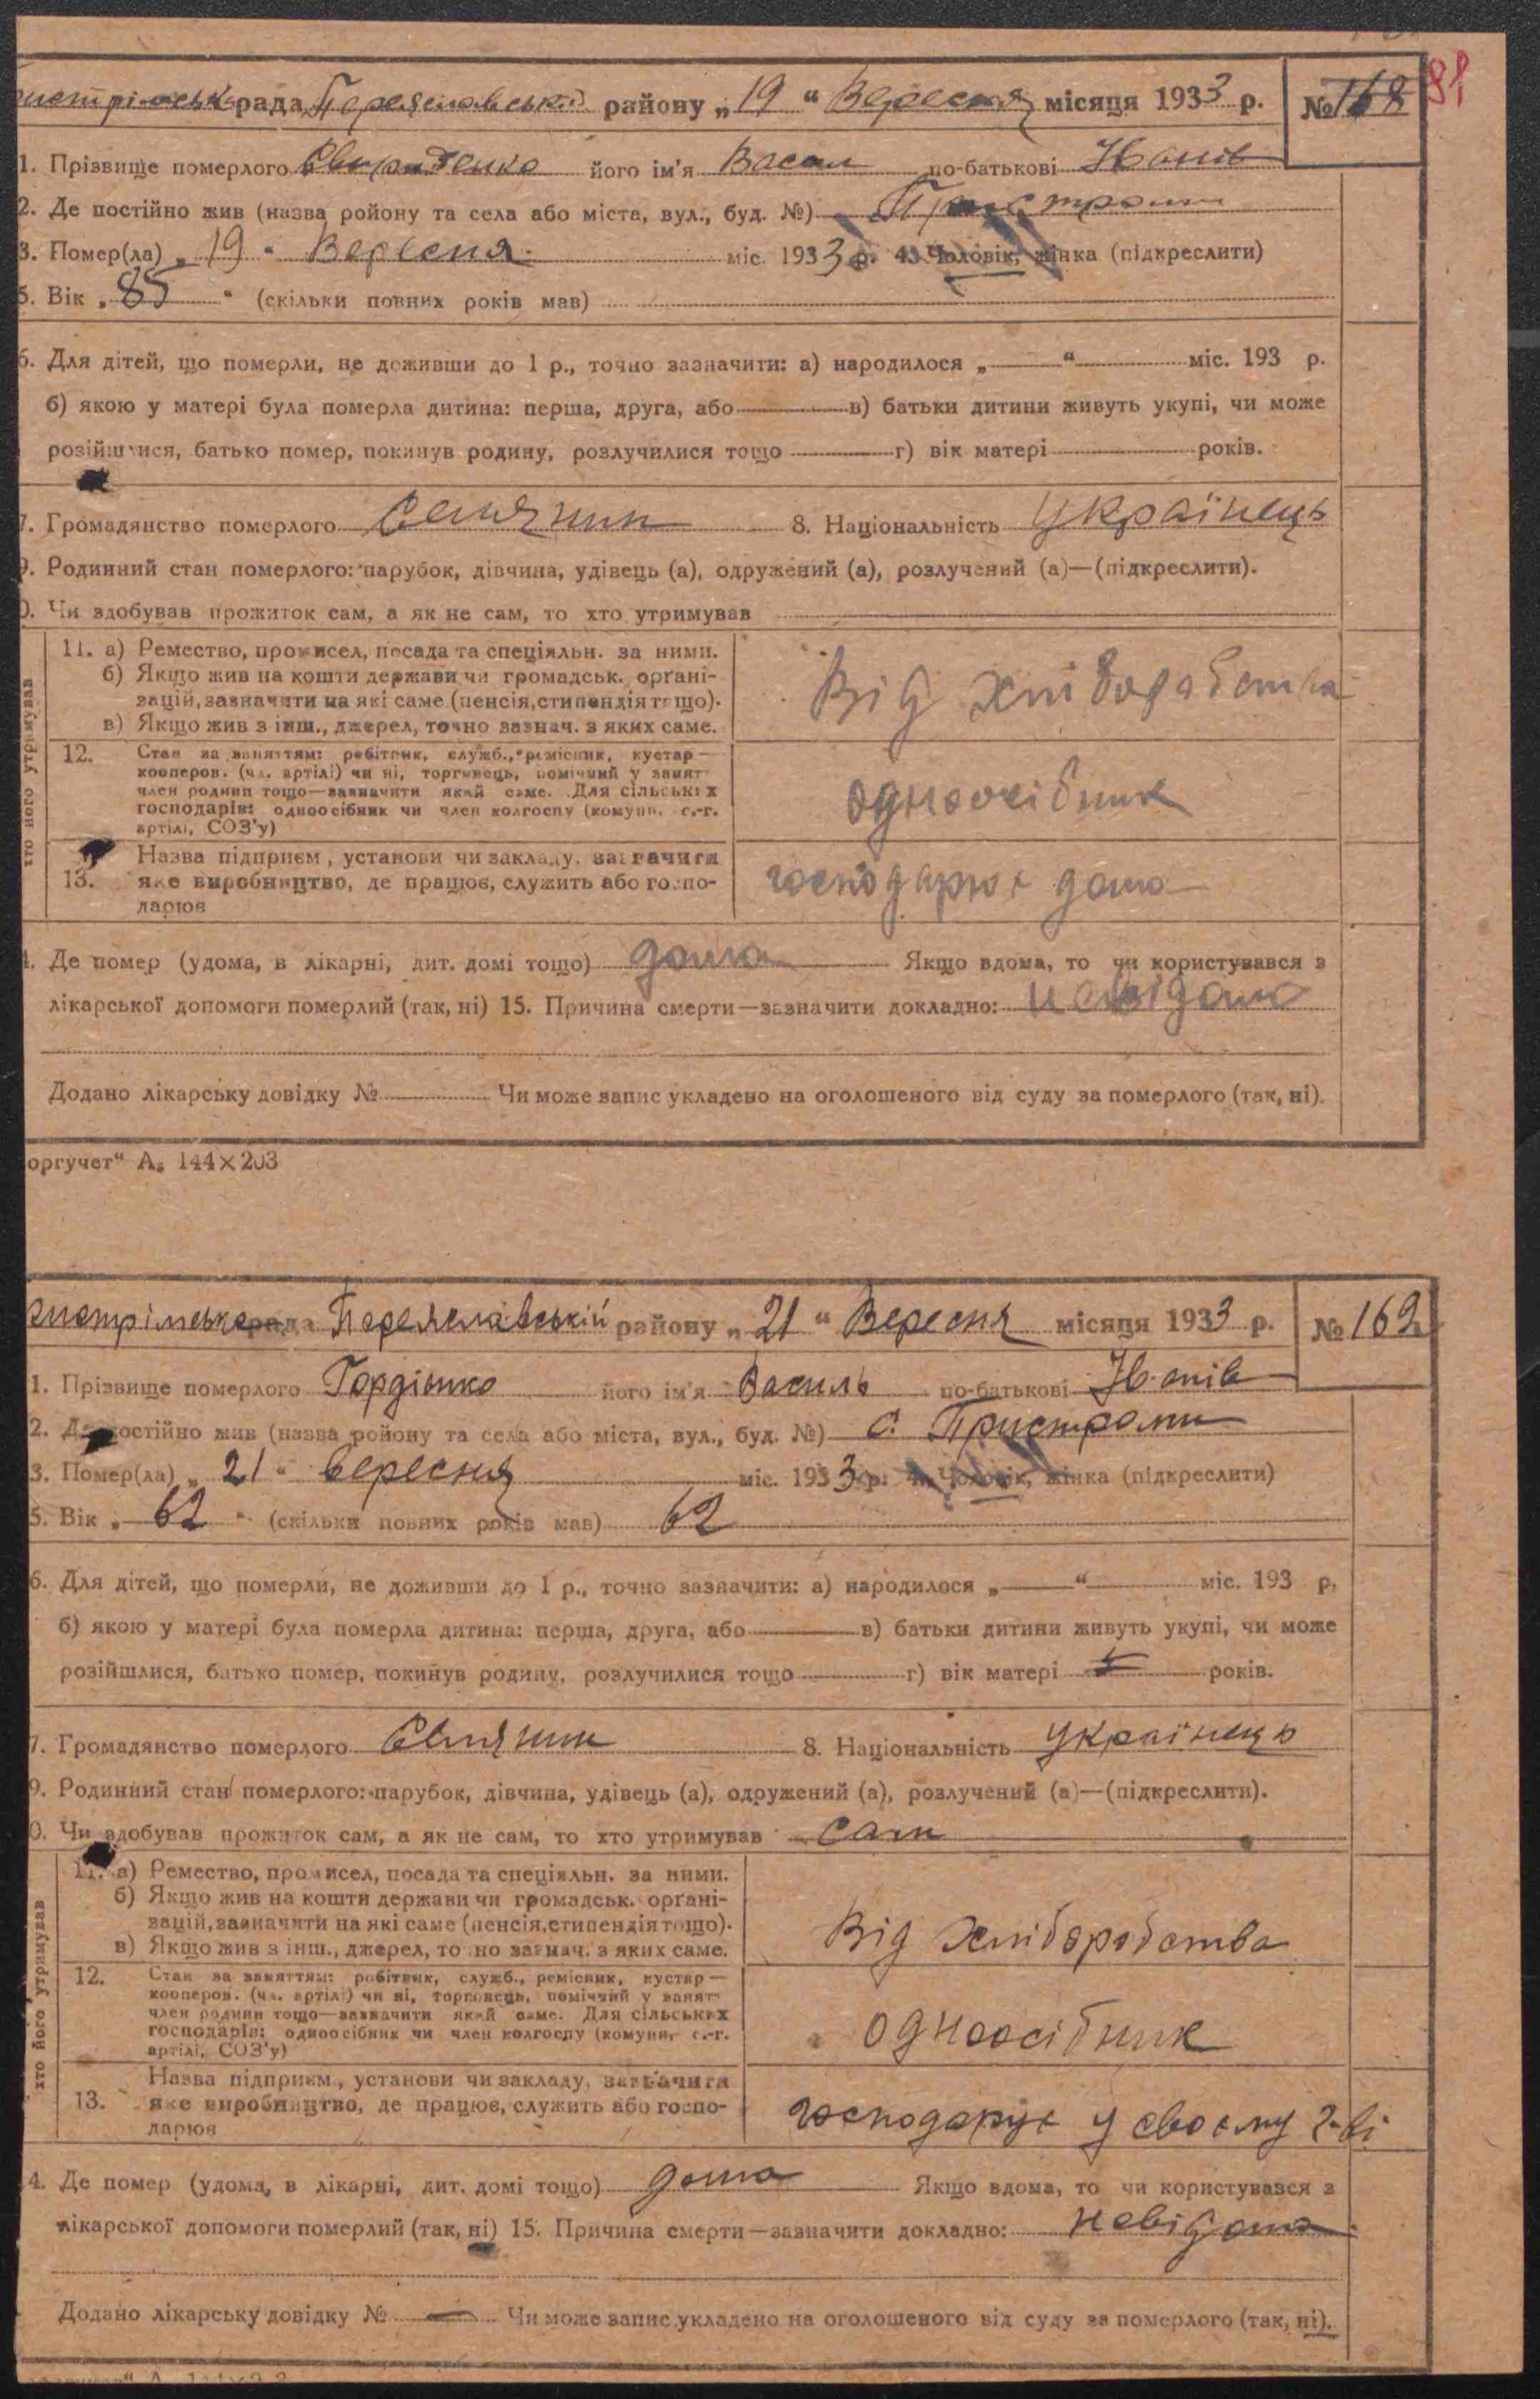 рада Переяславській району „19“ Вересня місяця 1933 р. № 168 81
1. Прізвище померлого його ім'я Васил по-батькові Іванів
2. Де постійно жив (назва району та села або міста, вул., буд. №) Пристроми
3. Помер(ла) „19“ Вересня міс. 1933 р. 4. Чоловік, жінка (підкреслити)
5. Вік „85“ (скільки повних років мав)
6. Для дітей, що померли, не доживши до 1 р., точно зазначити: а) народилося „ “ міс. 193 р.
б) якою у матері була померла дитина: перша, друга, або в) батьки дитини живуть укупі, чи може
розійшлися, батько помер, покинув родину, розлучилися тощо г) вік матері років.
7. Громадянство померлого Селянин 8. Національність Українець
9. Родинний стан померлого: парубок, дівчина, удівець (а), одружений (а), розлучений (а)—(підкреслити).
0. Чи здобував прожиток сам, а як не сам, то хто утримував
хто його утримував
11. а) Ремество, промисел, посада та спеціяльн. за ними.
б) Якщо жив на кошти держави чи громадськ. орґані-
зацій, зазначити на які саме (пенсія, стипендія тощо).
в) Якщо жив з інш., джерел, точно зазнач. з яких саме.
Від хліборобства
12. Стан за заняттям: робітник, служб., ремісник, кустар—
кооперов. (чл. артілі) чи ні, торговець, помічний у занят
член родини тощо—зазначити який саме. Для сільських
господарів: одноосібник чи член колгоспу (комуни, с.-г.
артілі, СОЗ'у)
одноосібник
Назва підприєм., установи чи закладу, зазначити
13. яке виробництво, де працює, служить або госпо-
дарює
господарює дома
4. Де помер (удома, в лікарні, дит. домі тощо) дома Якщо вдома, то чи користувався з
лікарської допомоги померлий (так, ні) 15. Причина смерти—зазначити докладно: невідома
Додано лікарську довідку № Чи може запис укладено на оголошеного від суду за померлого (так, ні).
оргучет“ А₆ 144×203
рада Переяславській району „21“ Вересня місяця 1933 р. № 169
1. Прізвище померлого Гордієнко його ім'я Василь по-батькові Іванів
2. Де постійно жив (назва району та села або міста, вул., буд. №) с. Пристроми
3. Помер(ла) „21“ вересня міс. 1933 р. 4. Чоловік, жінка (підкреслити)
5. Вік „62“ (скільки повних років мав) 62
6. Для дітей, що померли, не доживши до 1 р., точно зазначити: а) народилося „ “ міс. 193 р.
б) якою у матері була померла дитина: перша, друга, або в) батьки дитини живуть укупі, чи може
розійшлися, батько помер, покинув родину, розлучилися тощо г) вік матері років.
7. Громадянство померлого Селянин 8. Національність українець
9. Родинний стан померлого: парубок, дівчина, удівець (а), одружений (а), розлучений (а)—(підкреслити).
0. Чи здобував прожиток сам, а як не сам, то хто утримував сам
хто його утримував
11. а) Ремество, промисел, посада та спеціяльн. за ними.
б) Якщо жив на кошти держави чи громадськ. орґані-
зацій, зазначити на які саме (пенсія, стипендія тощо).
в) Якщо жив з інш., джерел, точно зазнач. з яких саме.
Від хліборобства
12. Стан за заняттям: робітник, служб., ремісник, кустар—
кооперов. (чл. артілі) чи ні, торговець, помічний у занят
член родини тощо—зазначити який саме. Для сільських
господарів: одноосібник чи член колгоспу (комуни, с.-г.
артілі, СОЗ'у)
одноосібник
Назва підприєм., установи чи закладу, зазначити
13. яке виробництво, де працює, служить або госпо-
дарює
господарує у своєму г-ві
4. Де помер (удома, в лікарні, дит. домі тощо) дома Якщо вдома, то чи користувався з
лікарської допомоги померлий (так, ні) 15. Причина смерти—зазначити докладно: невідома
Додано лікарську довідку № — Чи може запис укладено на оголошеного від суду за померлого (так, ні).